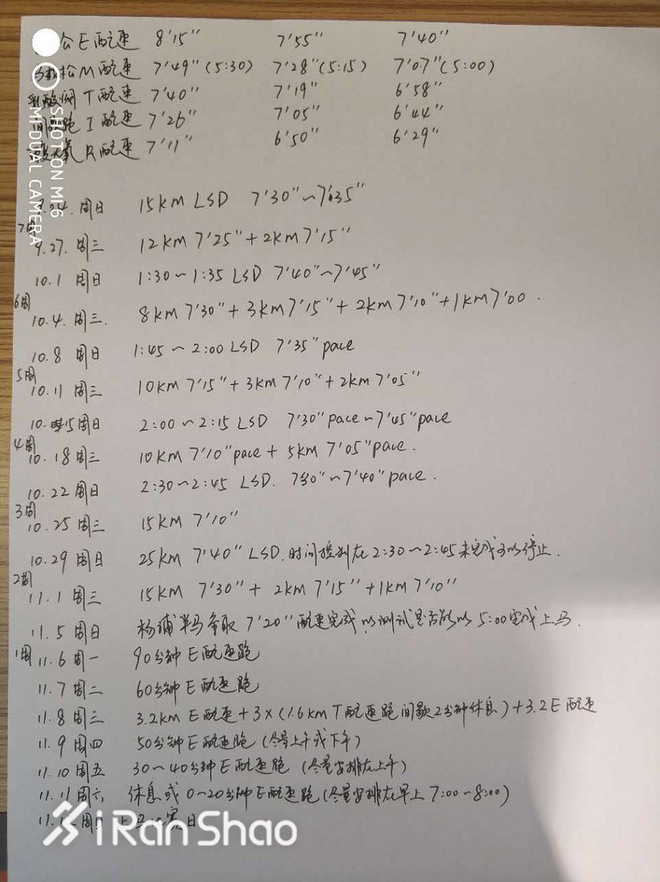 E配速 8'15" 7'55" 7'40"
马拉松M配速 7'49"(5:30) 7'28"(5:15) 7'07"(5:00)
乳酸阈T配速 7'40" 7'19" 6'58"
间歇跑I配速 7'26" 7'05" 6'44"
R配速 7'11" 6'50" 6'29"
9.24. 周日 15km LSD 7'30"~7'35"
7周
9.27. 周三 12km 7'25"+2km 7'15"
10.1 周日 1:30~1:35 LSD 7'40"~7'45"
6周
10.4. 周三. 8km 7'30"+3km 7'15"+2km 7'10"+1km 7'00.
10.8 周日 1:45~2:00 LSD 7'35" pace
5周
10.11 周三 10km 7'15"+3km 7'10"+2km 7'05"
10.15周日 2:00~2:15 LSD 7'30"pace~7'45"pace
4周
10.18周三 10km 7'10"pace + 5km 7'05"pace.
10.22 周日 2:30~2:45 LSD. 7'30"~7'40"pace.
3周
10.25 周三 15km 7'10"
10.29 周日 25km 7'40" LSD. 时间控制在2:30~2:45未完成可以停止.
2周
11.1 周三 15km 7'30"+ 2km 7'15"+1km 7'10"
11.5 周日 杨浦半马争取7'20"配速完成,以测试是否能以5:00完成上马.
1周
11.6 周一 90分钟E配速跑
11.7 周二 60分钟E配速跑
11.8 周三 3.2km E配速+3×(1.6km T配速跑间歇2分钟休息)+3.2E配速
11.9 周四 50分钟E配速跑(尽量上午或下午)
11.10 周五 30~40分钟E配速跑(尽量安排在上午)
11.11 周六 休息或0~20分钟E配速跑(尽量安排在早上7:00~8:00)
日
SHOT ON MI 6
MI DUAL CAMERA
iRanShao